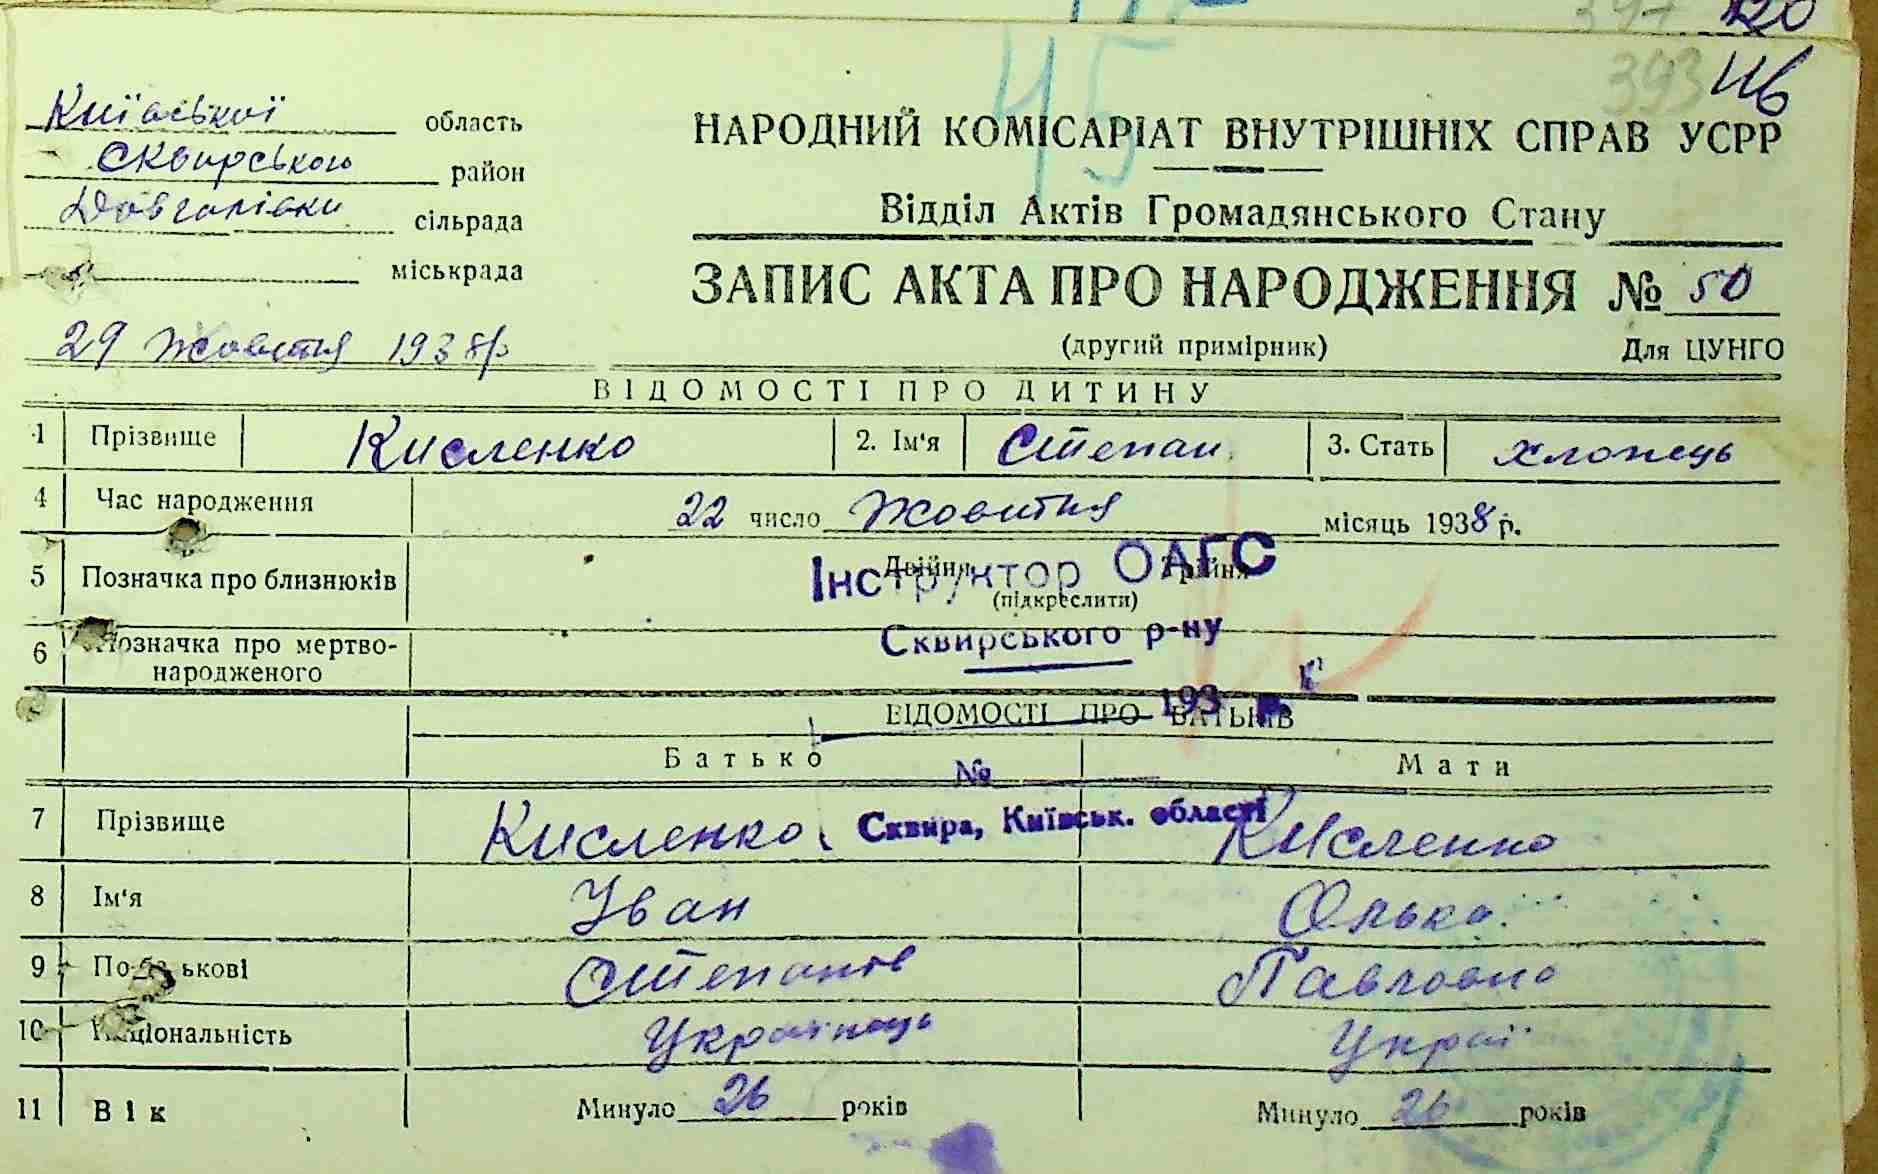 120
393 116
45
Київської область
Сквирського район
Довгалівки сільрада
міськрада
29 Жовтня 1938р
НАРОДНИЙ КОМІСАРІАТ ВНУТРІШНІХ СПРАВ УСРР
Відділ Актів Громадянського Стану
ЗАПИС АКТА ПРО НАРОДЖЕННЯ № 50
(другий примірник) Для ЦУНГО
ВІДОМОСТІ ПРО ДИТИНУ
1 Прізвище Кисленко 2. Ім'я Степан 3. Стать хлопець
4 Час народження 22 число Жовтня місяць 1938 р.
5 Позначка про близнюків Двійня Трійня
(підкреслити)
Інструктор ОАГС
Сквирського р-ну
6 Позначка про мертво-
народженого
193 р.
ВІДОМОСТІ ПРО БАТЬКІВ
Батько Мати
№
Сквира, Київськ. області
7 Прізвище Кисленко Кисленко
8 Ім'я Іван Олька
9 По батькові Степанов Павловна
10 Національність Українець Украї
11 Вік Минуло 26 років Минуло 26 років